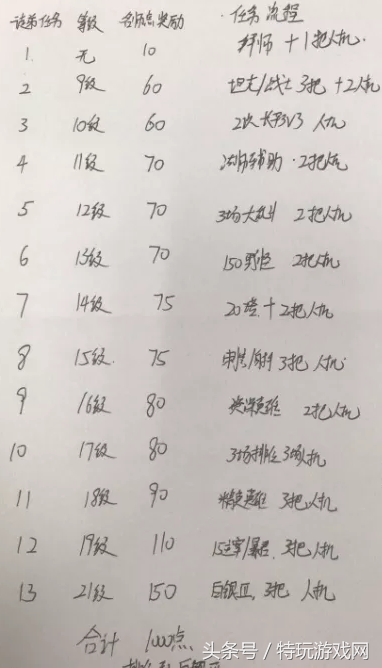 徒弟任务 等级 名师点奖励 任务流程
1. 无 10 拜师 +1把人机
2 9级 60 坦克/战士3把 +2人机
3 10级 60 2次长平3V3 人机
4 11级 70 法师辅助·2把人机
5 12级 70 3场大乱斗 2把人机
6 13级 70 150野怪 2把人机
7 14级 75 20塔+2把人机
8 15级. 75 刺客/射手3把 人机
9 16级 80 2把人机
10 17级 80 3场排位3场人机
11 18级 90 精英难 3把人机
12 19级 110 3把人机
13 21级 150 白银Ⅲ, 3把 人机
合计 1000点
头条号/特玩游戏网